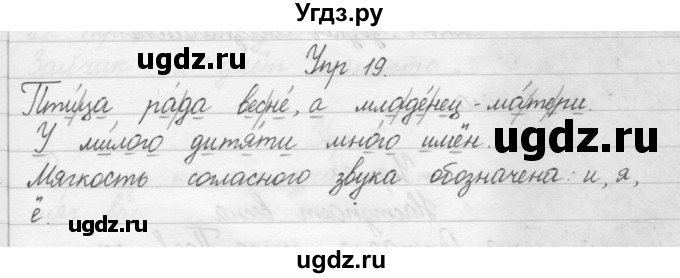 Угдз.ру
Упр 19.
Птица рада весне, а младенец - матери.
У милого дитяти много имён.
Мягкость согласного звука обозначена: и, я,
ё.
ugdz.ru
ugdz.ru
ugdz.ru
ugdz.ru
ugdz.ru
ugdz.ru